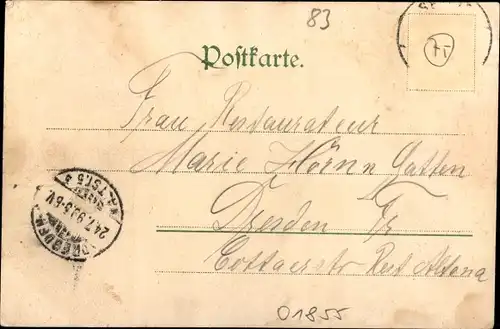 83
Postkarte.
Frau Restaurateur
Marie Hörnn Gatten
Dresden
Cottaerstr Rest Altona
DRESDEN
ALTST. 5
24.7.9
5-6 V.
01855